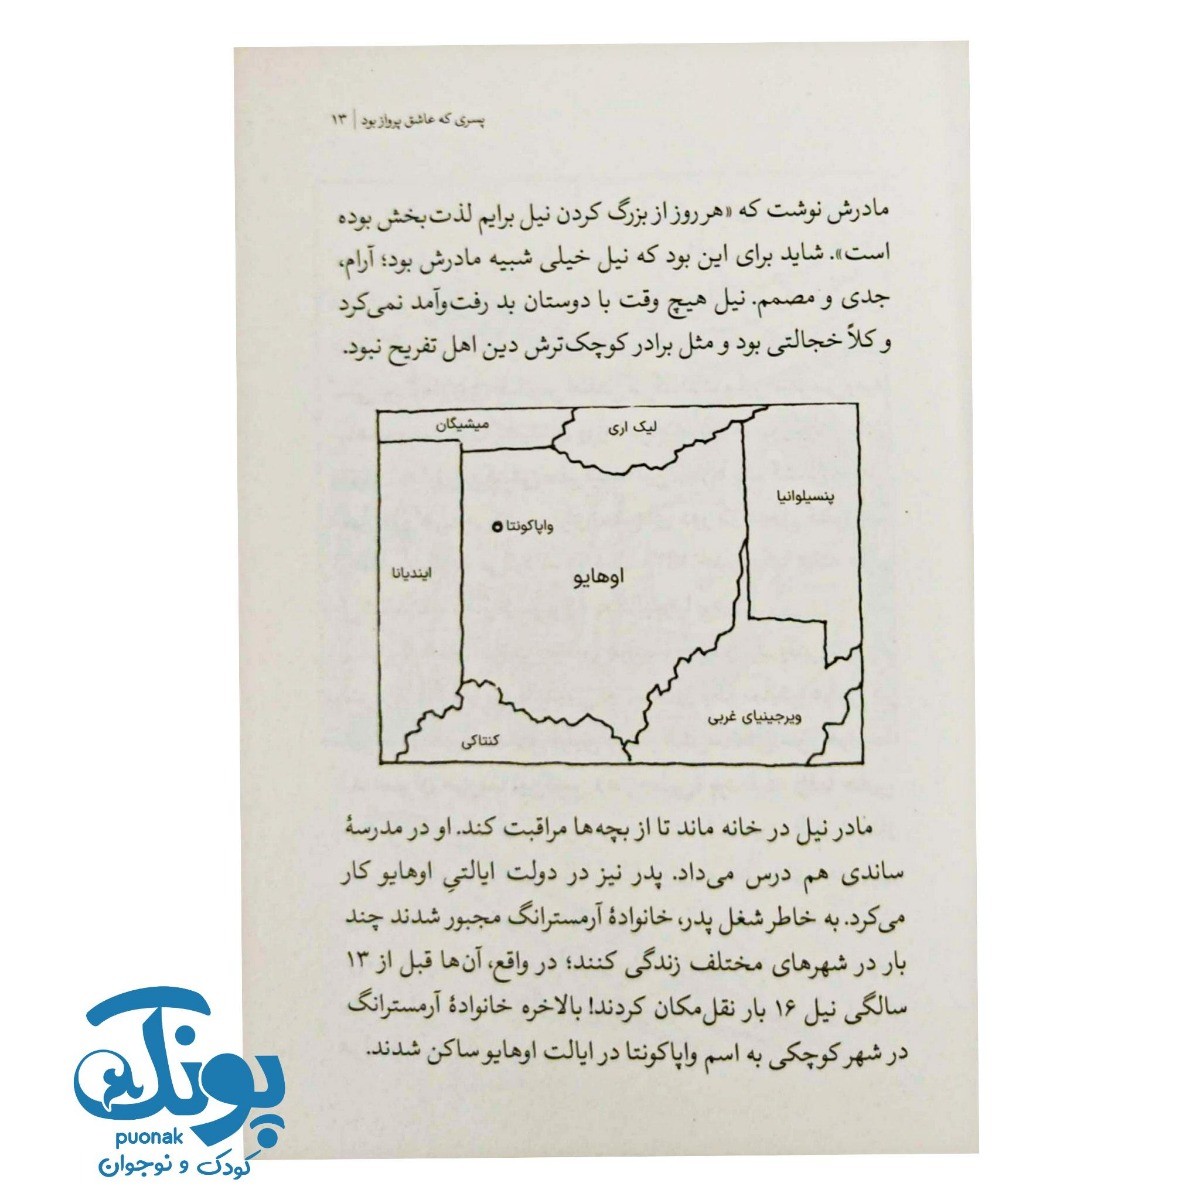 پسری که عاشق پرواز بود | ۱۳
مادرش نوشت که «هر روز از بزرگ کردن نیل برایم لذت‌بخش بوده
است». شاید برای این بود که نیل خیلی شبیه مادرش بود؛ آرام،
جدی و مصمم. نیل هیچ وقت با دوستان بد رفت‌وآمد نمی‌کرد
و کلاً خجالتی بود و مثل برادر کوچک‌ترش دین اهل تفریح نبود.
میشیگان
لیک اری
پنسیلوانیا
واپاکونتا
ایندیانا
اوهایو
ویرجینیای غربی
کنتاکی
مادر نیل در خانه ماند تا از بچه‌ها مراقبت کند. او در مدرسهٔ
ساندی هم درس می‌داد. پدر نیز در دولت ایالتیِ اوهایو کار
می‌کرد. به خاطر شغل پدر، خانوادهٔ آرمسترانگ مجبور شدند چند
بار در شهرهای مختلف زندگی کنند؛ در واقع، آن‌ها قبل از ۱۳
سالگی نیل ۱۶ بار نقل‌مکان کردند! بالاخره خانوادهٔ آرمسترانگ
در شهر کوچکی به اسم واپاکونتا در ایالت اوهایو ساکن شدند.
پونک
puonak
کودک و نوجوان